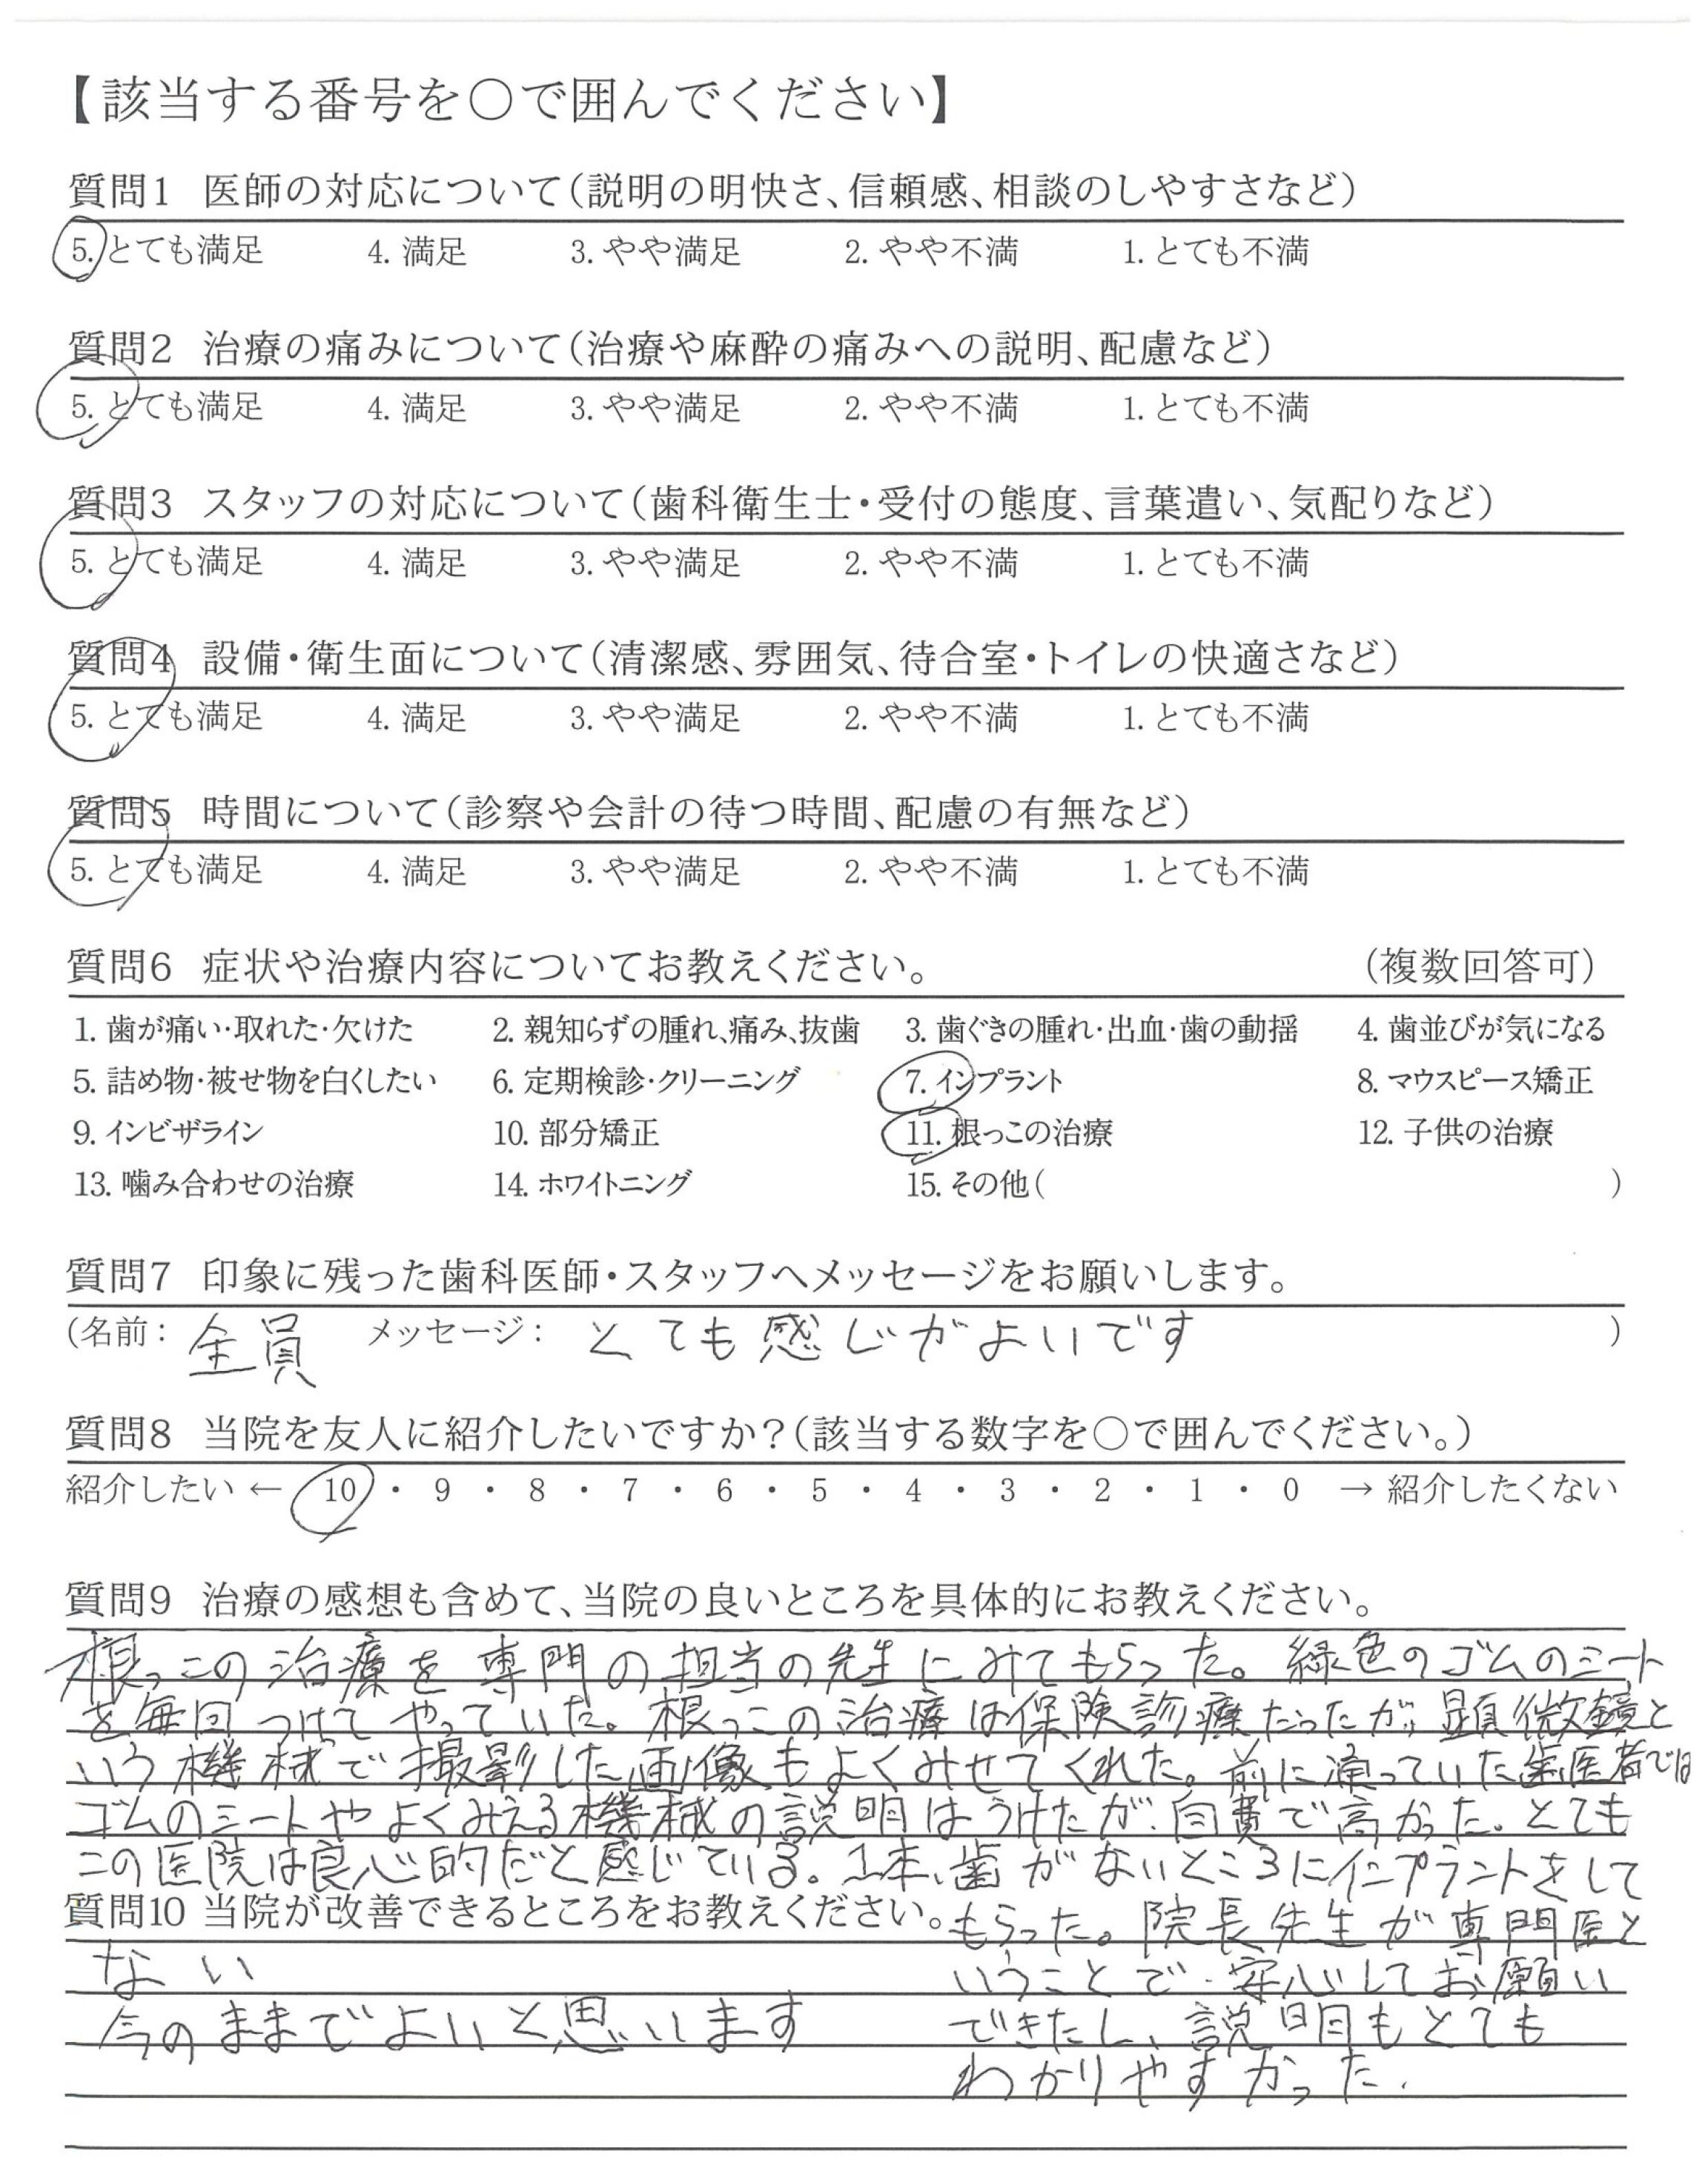 【該当する番号を〇で囲んでください】
質問1 医師の対応について(説明の明快さ、信頼感、相談のしやすさなど)
5. とても満足 4. 満足 3. やや満足 2. やや不満 1. とても不満
質問2 治療の痛みについて(治療や麻酔の痛みへの説明、配慮など)
5. とても満足 4. 満足 3. やや満足 2. やや不満 1. とても不満
質問3 スタッフの対応について(歯科衛生士・受付の態度、言葉遣い、気配りなど)
5. とても満足 4. 満足 3. やや満足 2. やや不満 1. とても不満
質問4 設備・衛生面について(清潔感、雰囲気、待合室・トイレの快適さなど)
5. とても満足 4. 満足 3. やや満足 2. やや不満 1. とても不満
質問5 時間について(診察や会計の待つ時間、配慮の有無など)
5. とても満足 4. 満足 3. やや満足 2. やや不満 1. とても不満
質問6 症状や治療内容についてお教えください。 (複数回答可)
1. 歯が痛い・取れた・欠けた 2. 親知らずの腫れ、痛み、抜歯 3. 歯ぐきの腫れ・出血・歯の動揺 4. 歯並びが気になる
5. 詰め物・被せ物を白くしたい 6. 定期検診・クリーニング 7. インプラント 8. マウスピース矯正
9. インビザライン 10. 部分矯正 11. 根っこの治療 12. 子供の治療
13. 噛み合わせの治療 14. ホワイトニング 15. その他( )
質問7 印象に残った歯科医師・スタッフへメッセージをお願いします。
(名前: 全員 メッセージ: とても感じがよいです )
質問8 当院を友人に紹介したいですか?(該当する数字を〇で囲んでください。)
紹介したい ← 10 ・ 9 ・ 8 ・ 7 ・ 6 ・ 5 ・ 4 ・ 3 ・ 2 ・ 1 ・ 0 → 紹介したくない
質問9 治療の感想も含めて、当院の良いところを具体的にお教えください。
根っこの治療を専門の担当の先生にみてもらった。緑色のゴムのシート
を毎回つけてやっていた。根っこの治療は保険診療だったが、顕微鏡と
いう機材で撮影した画像もよくみせてくれた。前に通っていた歯医者では
ゴムのシートやよくみえる機械の説明はうけたが、自費で高かった。とても
この医院は良心的だと感じている。1本、歯がないところにインプラントをして
もらった。院長先生が専門医と
いうことで、安心してお願い
できたし、説明もとても
わかりやすかった.
質問10 当院が改善できるところをお教えください。
ない
今のままでよいと思います